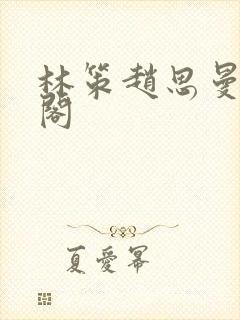 林策趙思曼
閣
夏愛冪